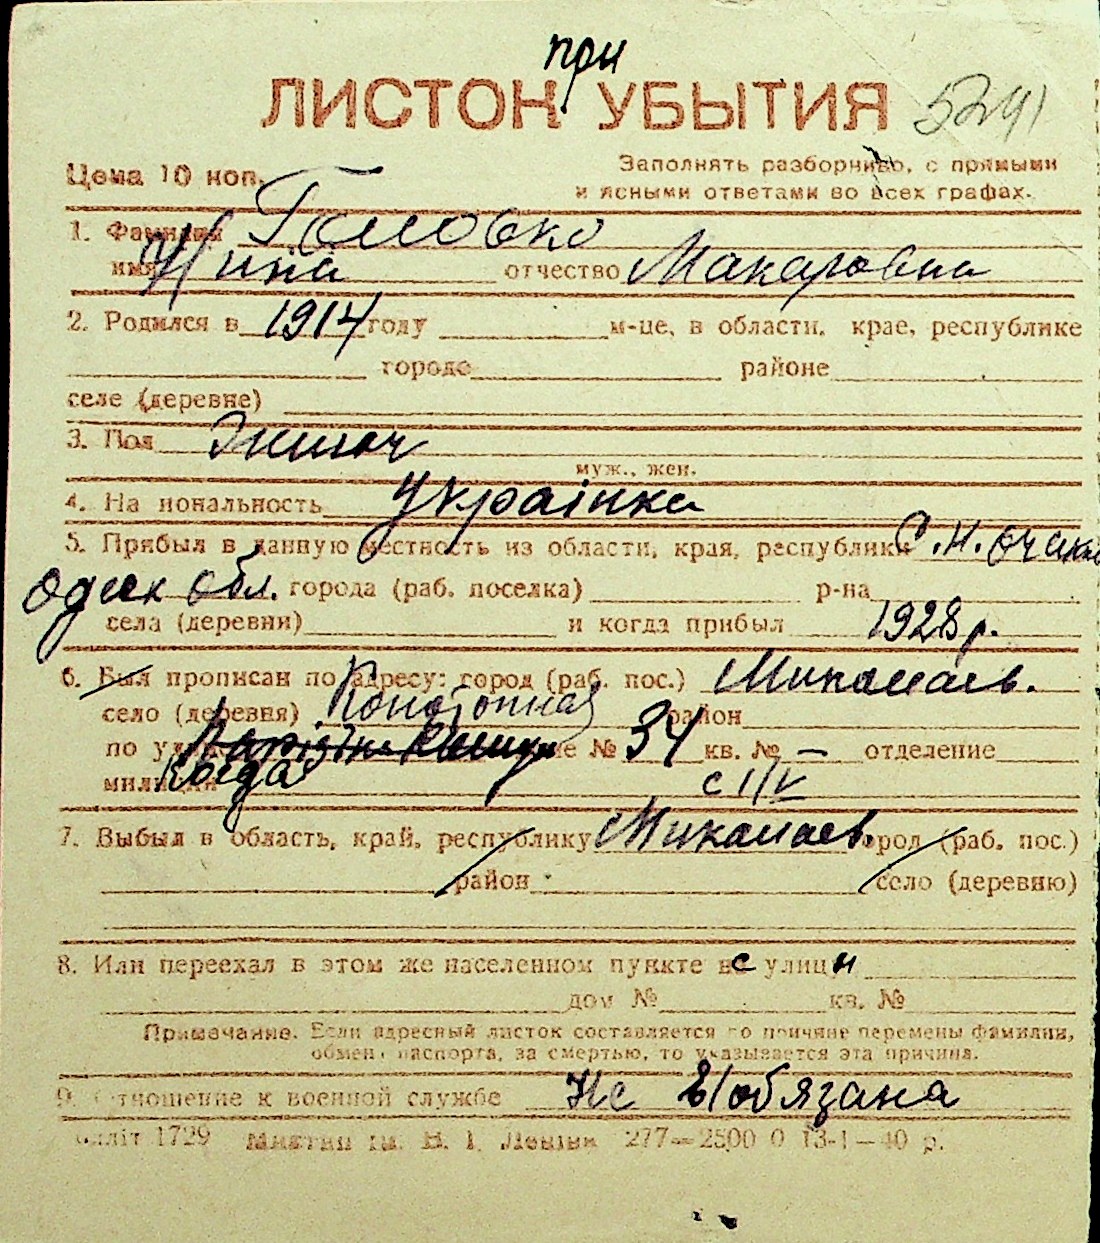 при
ЛИСТОК УБЫТИЯ 5241
Цена 10 коп. Заполнять разборчиво, с прямыми
и ясными ответами во всех графах.
1. Фамилия Головко
имя Нина отчество Макаровна
2. Родился в 1914 году м-це, в области, крае, республике
городе районе
селе (деревне)
3. Пол
муж., жен.
4. Национальность Українка
5. Прибыл в данную местность из области, края, республики С.Н.
Одеск обл. города (раб. поселка) р-на
села (деревни) и когда прибыл 1928 р.
6. Был прописан по адресу: город (раб. пос.) Миколаев.
село (деревня) район
по № 34 кв. № – отделение
милиции Когда с 1/V
7. Выбыл в область, край, республику Миколаев город (раб. пос.)
район село (деревню)
8. Или переехал в этом же населенном пункте с улицы
дом № кв. №
Примечание. Если адресный листок составляется по причине перемены фамилии,
обмена паспорта, за смертью, то указывается эта причина.
9. Отношение к военной службе Не в/обязана
1729 ім. В. І. Леніна 277—2500 0 13-1—40 р.